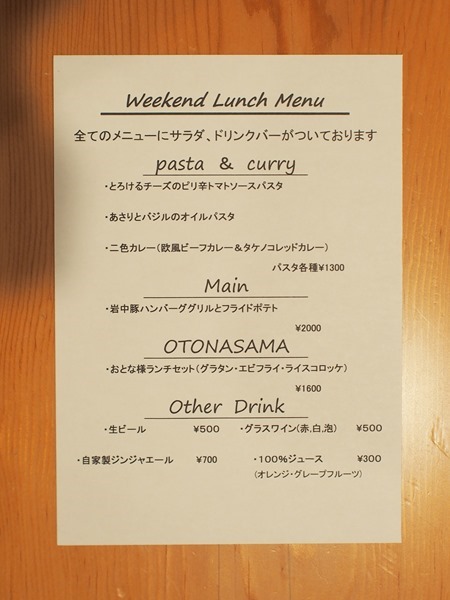 Weekend Lunch Menu
全てのメニューにサラダ、ドリンクバーがついております
pasta & curry
・とろけるチーズのピリ辛トマトソースパスタ
・あさりとバジルのオイルパスタ
・二色カレー(欧風ビーフカレー&タケノコレッドカレー)
パスタ各種¥1300
Main
・岩中豚ハンバーググリルとフライドポテト
¥2000
OTONASAMA
・おとな様ランチセット(グラタン・エビフライ・ライスコロッケ)
¥1600
Other Drink
・生ビール ¥500 ・グラスワイン(赤,白,泡) ¥500
・自家製ジンジャエール ¥700 ・100%ジュース ¥300
(オレンジ・グレープフルーツ)